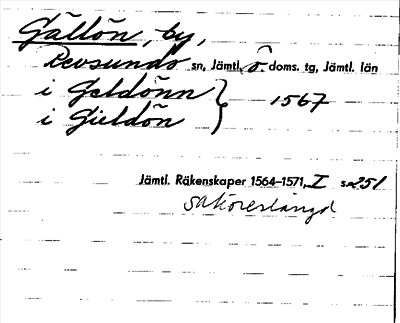 Gällön, by,
Revsunds sn, Jämtl. ö. doms. tg, Jämtl. län
i Geldönn } 1567
i Gieldön
Jämtl. Räkenskaper 1564–1571, I s. 251
saköreslängd